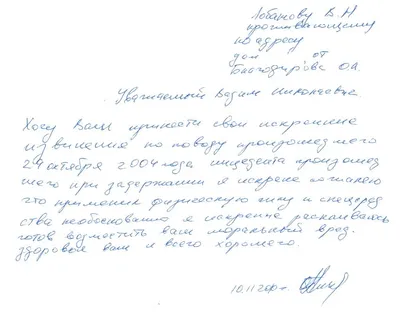 Лобанову В.Н
проживающему
по адресу
дом от
Благодирёва О.А.
Уважаемый Вадим Николаевич.
Хочу Вам принести свои искренние
извинения по поводу произошедшего
октября 2004 года инцедента произошед
шего при задержании я искрене сожалею
что применил физическую силу и спецсред
ства необоснованно я искренне раскаиваюсь
готов возместить вам моральный вред.
здоровья вам и всего хорошего.
10.11